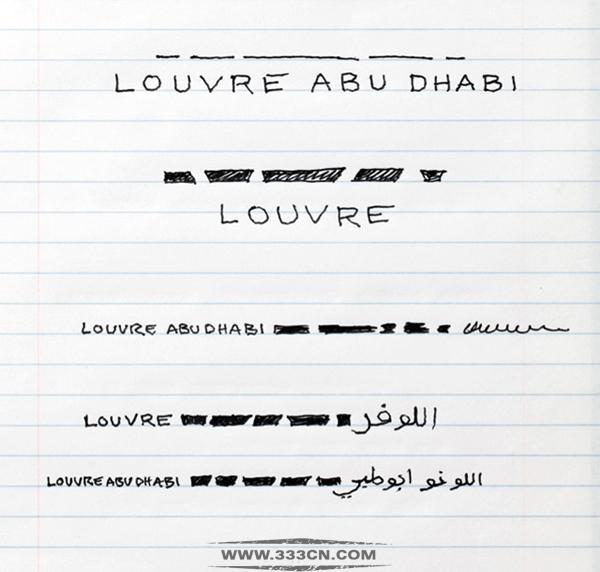 LOUVRE ABU DHABI
LOUVRE
LOUVRE ABU DHABI
LOUVRE اللوفر
LOUVRE ABU DHABI ابوظبي
WWW.333CN.COM